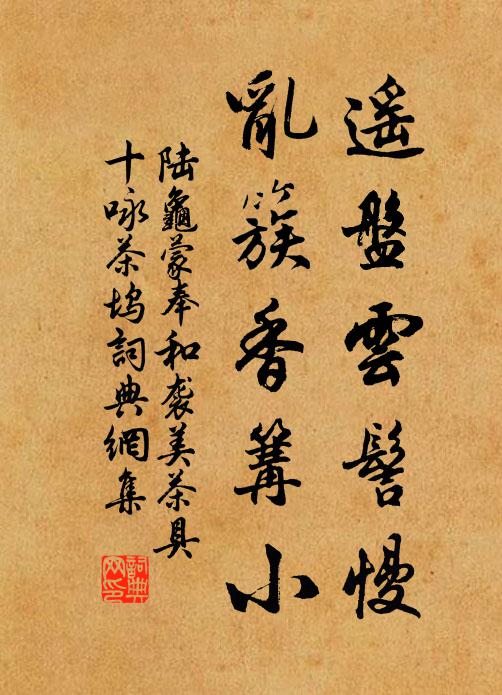 遥盤雲髻慢
亂簇香篝小
陸龜蒙奉和袭美茶具
十咏茶坞詞典網集
詞典网印